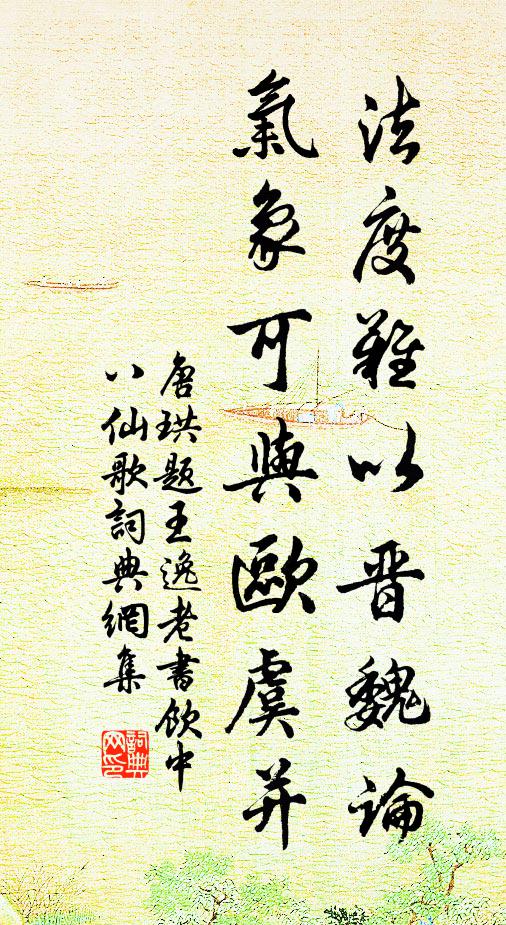 法度難以晋魏論
氣象可與歐虞并
唐珙題王逸老書飲中
八仙歌詞典網集
詞典网印